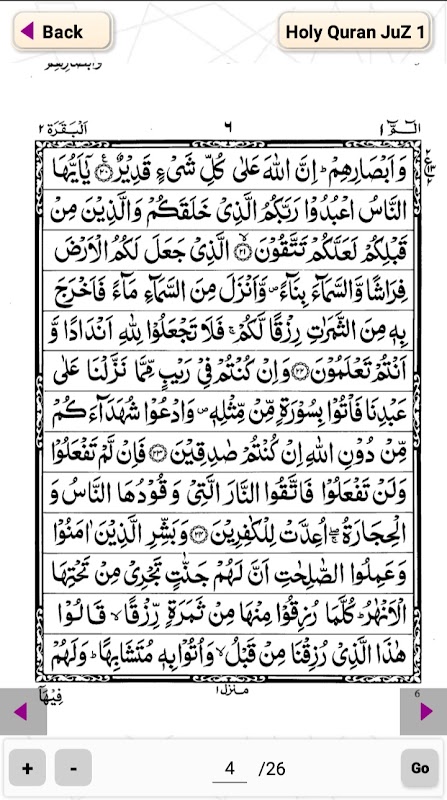 Back
Holy Quran JuZ 1
وَاَبْصَارِهِمْ
الٓمّٓ ۱ ٦ اَلْبَقَرَة ٢
وَاَبْصَارِهِمْ ؕ اِنَّ اللّٰهَ عَلٰى كُلِّ شَىْءٍ قَدِيْرٌ ۝٢٠ يٰۤاَيُّهَا
النَّاسُ اعْبُدُوْا رَبَّكُمُ الَّذِىْ خَلَقَكُمْ وَالَّذِيْنَ مِنْ
قَبْلِكُمْ لَعَلَّكُمْ تَتَّقُوْنَ ۝٢١ۙ الَّذِىْ جَعَلَ لَكُمُ الْاَرْضَ
فِرَاشًا وَّالسَّمَآءَ بِنَآءً ۪ وَّاَنْزَلَ مِنَ السَّمَآءِ مَآءً فَاَخْرَجَ
بِهٖ مِنَ الثَّمَرٰتِ رِزْقًا لَّكُمْ ۚ فَلَا تَجْعَلُوْا لِلّٰهِ اَنْدَادًا وَّ
اَنْتُمْ تَعْلَمُوْنَ ۝٢٢ وَاِنْ كُنْتُمْ فِىْ رَيْبٍ مِّمَّا نَزَّلْنَا عَلٰى
عَبْدِنَا فَاْتُوْا بِسُوْرَةٍ مِّنْ مِّثْلِهٖ ۪ وَادْعُوْا شُهَدَآءَكُمْ
مِّنْ دُوْنِ اللّٰهِ اِنْ كُنْتُمْ صٰدِقِيْنَ ۝٢٣ فَاِنْ لَّمْ تَفْعَلُوْا
وَلَنْ تَفْعَلُوْا فَاتَّقُوا النَّارَ الَّتِىْ وَقُوْدُهَا النَّاسُ وَ
الْحِجَارَةُ ۖۚ اُعِدَّتْ لِلْكٰفِرِيْنَ ۝٢٤ وَبَشِّرِ الَّذِيْنَ اٰمَنُوْا
وَعَمِلُوا الصّٰلِحٰتِ اَنَّ لَهُمْ جَنّٰتٍ تَجْرِىْ مِنْ تَحْتِهَا
الْاَنْهٰرُ ؕ كُلَّمَا رُزِقُوْا مِنْهَا مِنْ ثَمَرَةٍ رِّزْقًا ۙ قَالُوْا
هٰذَا الَّذِىْ رُزِقْنَا مِنْ قَبْلُ ۙ وَاُتُوْا بِهٖ مُتَشَابِهًا ؕ وَلَهُمْ
منزل ۱
فِيْهَآ
6
+ - 4 /26 Go